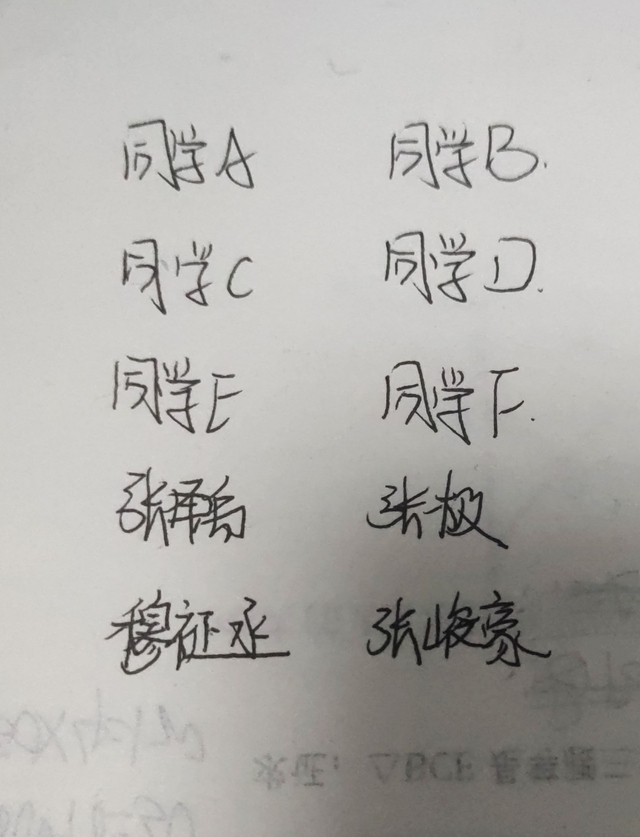 同学A 同学B.
同学C 同学D.
同学E 同学F.
张泽禹 张极
穆祉丞 张峻豪